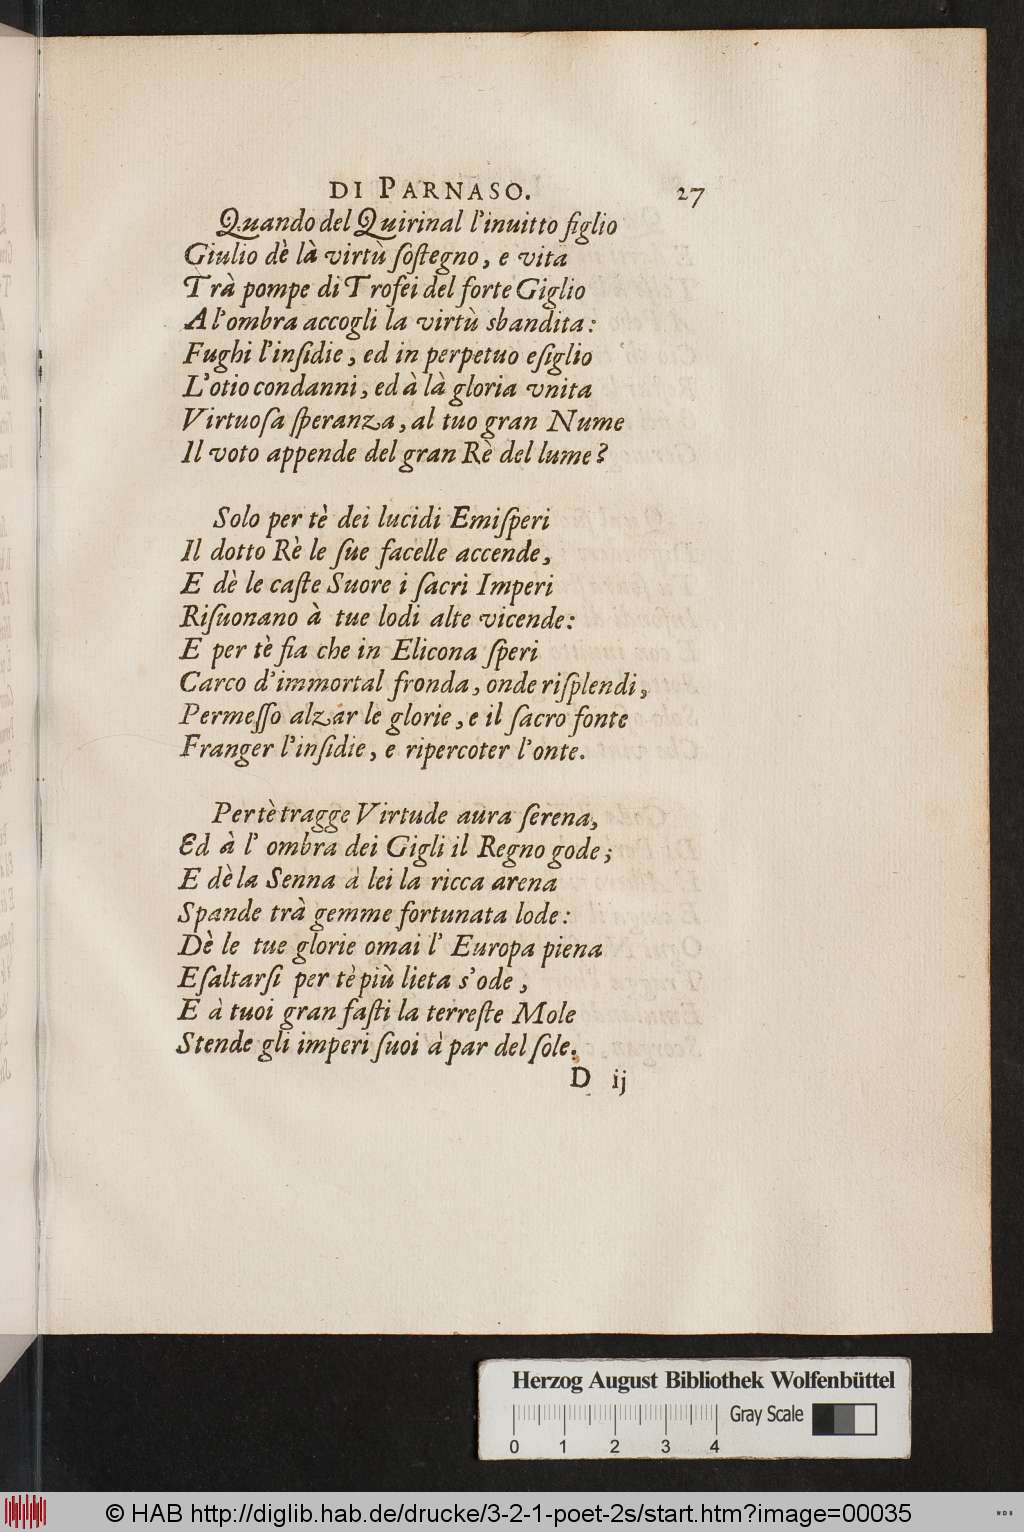 DI PARNASO. 27
Quando del Quirinal l'inuitto figlio
Giulio dè là virtù ſoſtegno, e vita
Trà pompe di Trofei del forte Giglio
Al'ombra accogli la virtù sbandita:
Fughi l'inſidie, ed in perpetuo eſiglio
L'otio condanni, ed à là gloria vnita
Virtuoſa ſperanza, al tuo gran Nume
Il voto appende del gran Rè del lume?
Solo per tè dei lucidi Emiſperi
Il dotto Rè le ſue facelle accende,
E dè le caſte Suore i ſacri Imperi
Riſuonano à tue lodi alte vicende:
E per tè fia che in Elicona ſperi
Carco d'immortal fronda, onde riſplendi,
Permeſſo alzar le glorie, e il ſacro fonte
Franger l'inſidie, e ripercoter l'onte.
Per tè tragge Virtude aura ſerena,
Ed à l' ombra dei Gigli il Regno gode;
E dè la Senna à lei la ricca arena
Spande trà gemme fortunata lode:
Dè le tue glorie omai l' Europa piena
Eſaltarſi per tè più lieta s'ode,
E à tuoi gran faſti la terreſte Mole
Stende gli imperi ſuoi à par del ſole.
D ij
Herzog August Bibliothek Wolfenbüttel
Gray Scale
0 1 2 3 4
© HAB http://diglib.hab.de/drucke/3-2-1-poet-2s/start.htm?image=00035